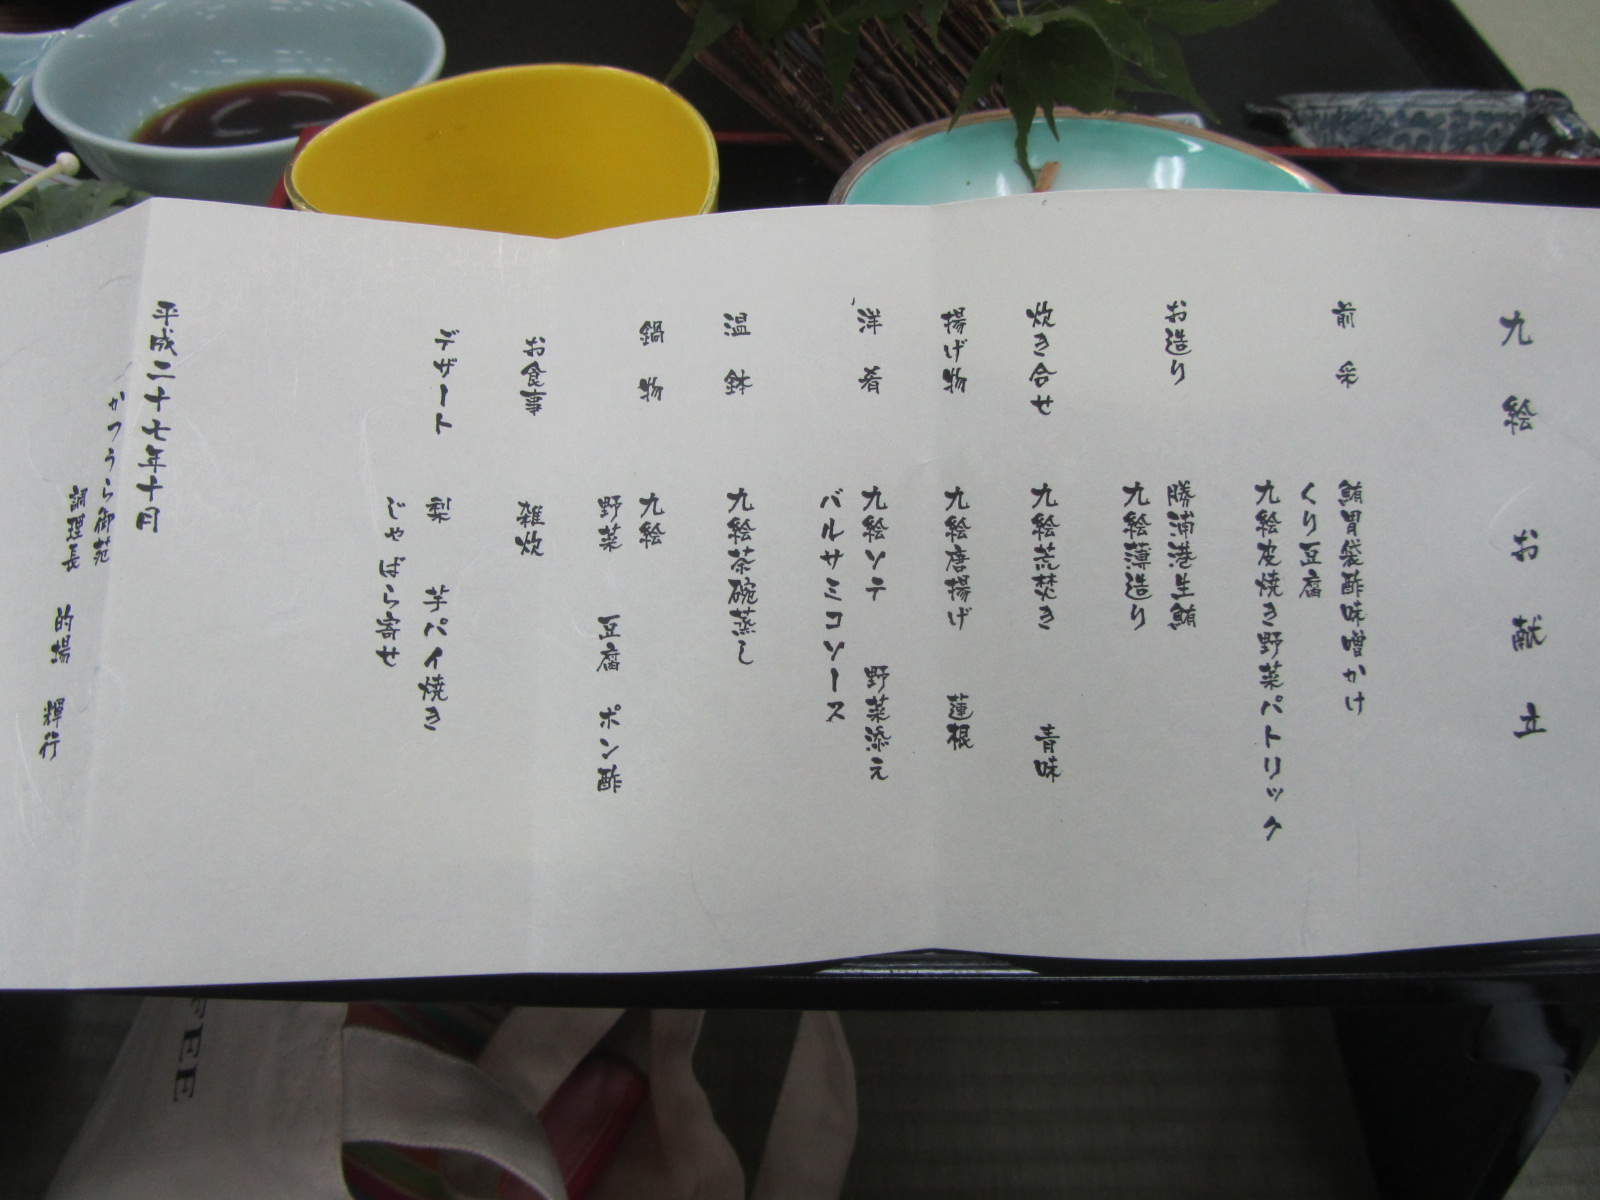 九絵お献立
前采
鮪胃袋酢味噌かけ
くり豆腐
九絵皮焼き野菜パトリック
お造り
勝浦港生鮪
九絵薄造り
炊き合せ
九絵荒焚き 青味
揚げ物
九絵唐揚げ 蓮根
洋肴
九絵ソテ 野菜添え
バルサミコソース
温鉢
九絵茶碗蒸し
鍋物
九絵
野菜 豆腐 ポン酢
お食事
雑炊
デザート
梨 芋パイ焼き
じゃばら寄せ
平成二十七年十月
かつうら御苑
調理長 的場 輝行
FEE